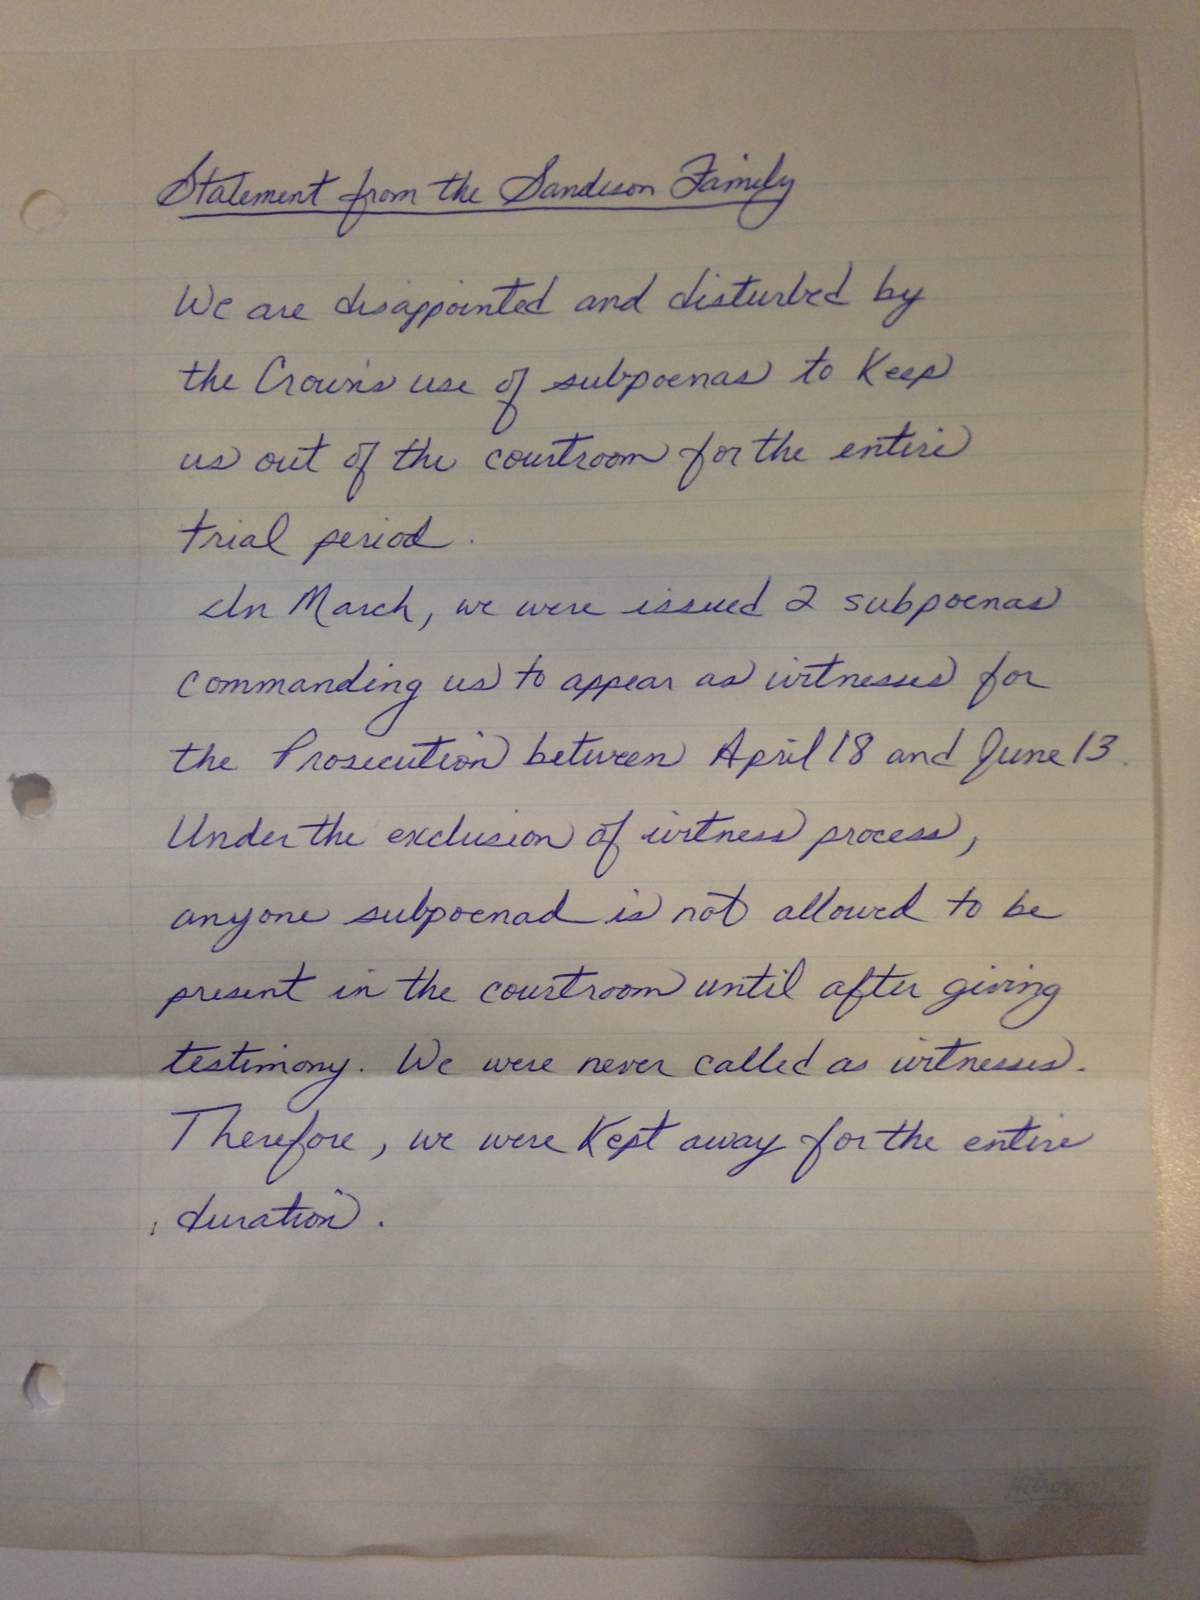 Statement from the Sandeson Family
We are disappointed and disturbed by
the Crown's use of subpoenas to Keep
us out of the courtroom for the entire
trial period.
In March, we were issued 2 subpoenas
commanding us to appear as witnesses for
the Prosecution between April 18 and June 13.
Under the exclusion of witness process,
anyone subpoenad is not allowed to be
present in the courtroom until after giving
testimony. We were never called as witnesses.
Therefore, we were Kept away for the entire
duration.
Hilroy